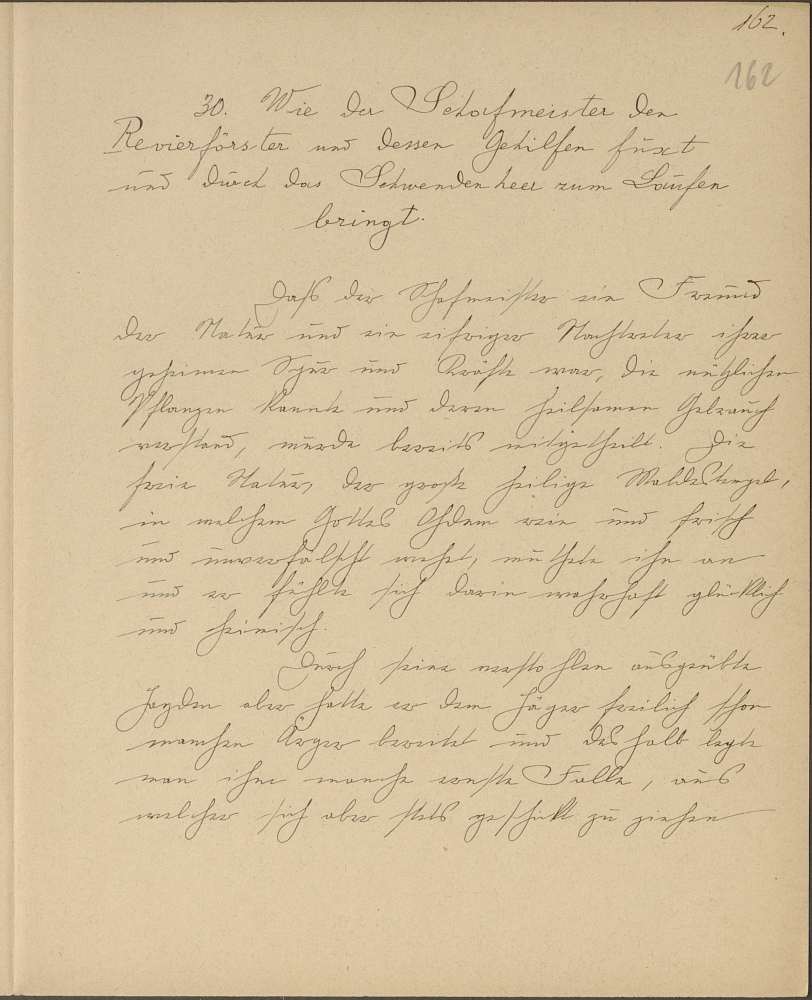 162.
162
30. Wie der Schafmeister den
Revierförster und dessen Gehilfen fuxt
und durch das Schwendenheer zum Laufen
bringt.
Daß der Schafmeister ein Freund
der Natur und ein eifriger Nachtreter ihrer
geheimen Spur und Kräfte war, die nützlichen
Pflanzen kannte und deren heilsamen Gebrauch
verstand, wurde bereits mitgetheilt. Die
freie Natur, der große heilige Waldestempel,
in welchem Gottes Odem rein und frisch
und unverfälscht wehet, muthete ihn an
und er fühlte sich darin wahrhaft glücklich
und heimisch.
Durch seine verstohlen ausgeübte
Jagden aber hatte er dem Jäger freilich schon
manchen Ärger bereitet und deshalb legte
man ihm manche ernste Falle, aus
welcher sich aber stets geschickt zu ziehen